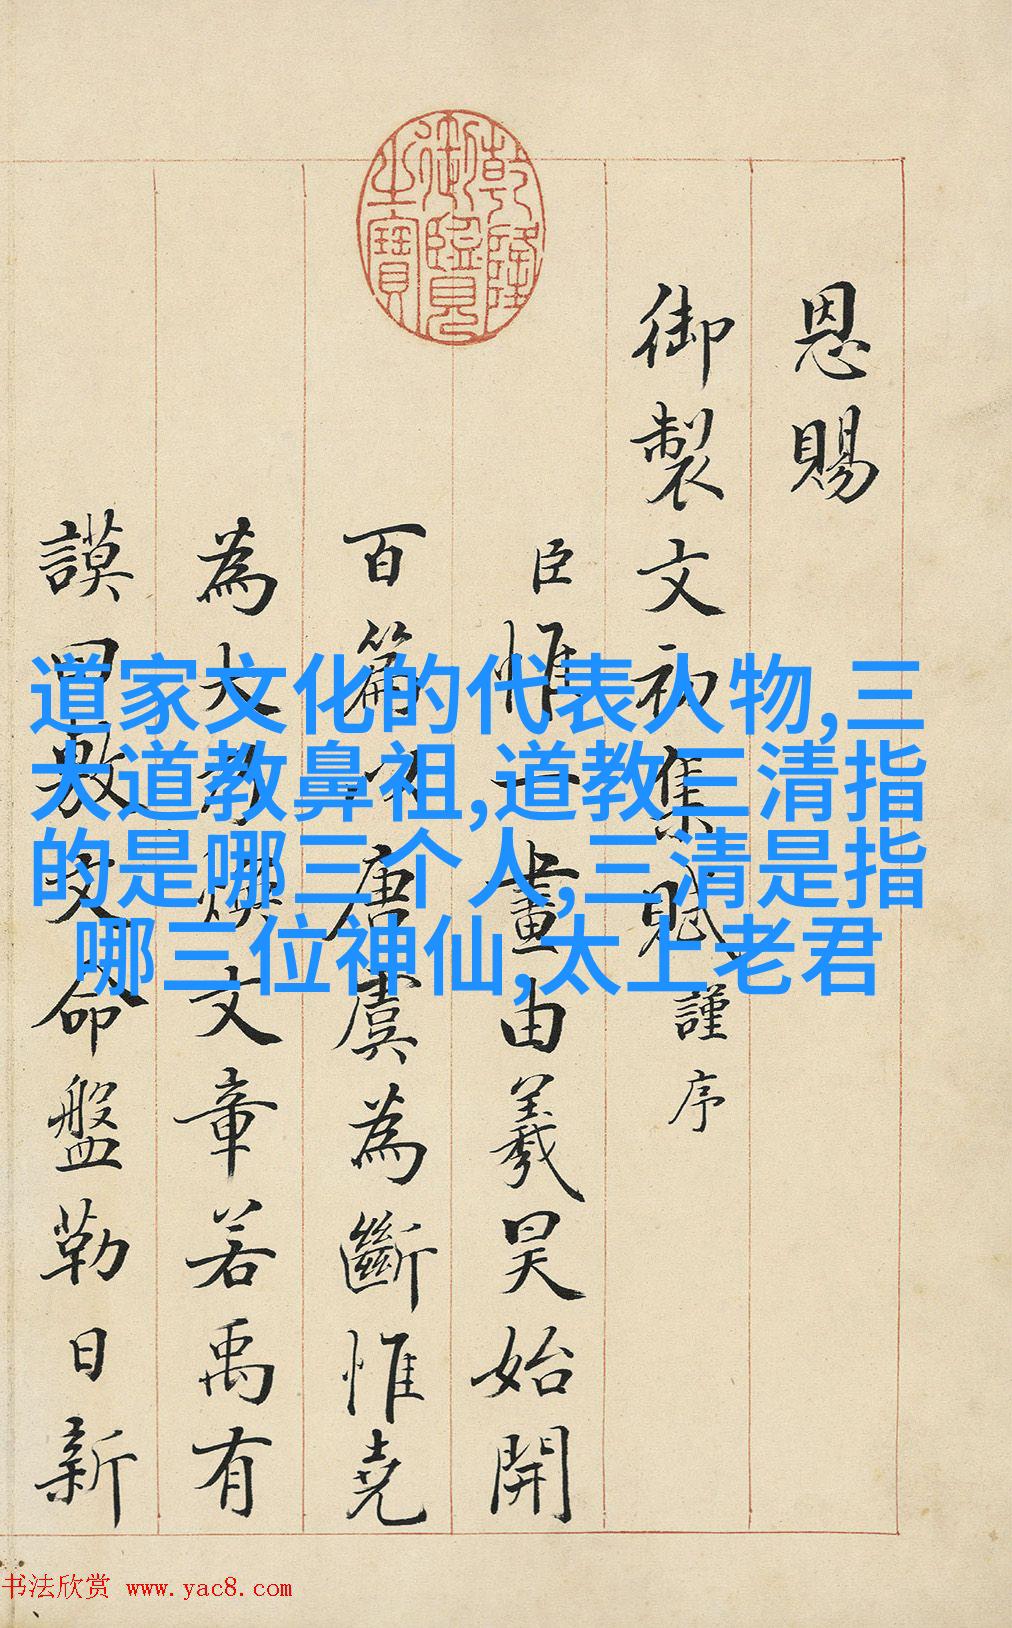 乾隆御覽之寶
恩賜
御製文初集賦謹序
臣惟一畫由羲昊始開
百篇以唐虞為斷惟堯
為大煥文章若禹有
謨曰敷文命盤勒日新
道家文化的代表人物,三
大道教鼻祖,道教三清指
的是哪三个人,三清是指
哪三位神仙,太上老君
书法欣赏 www.yac8.com